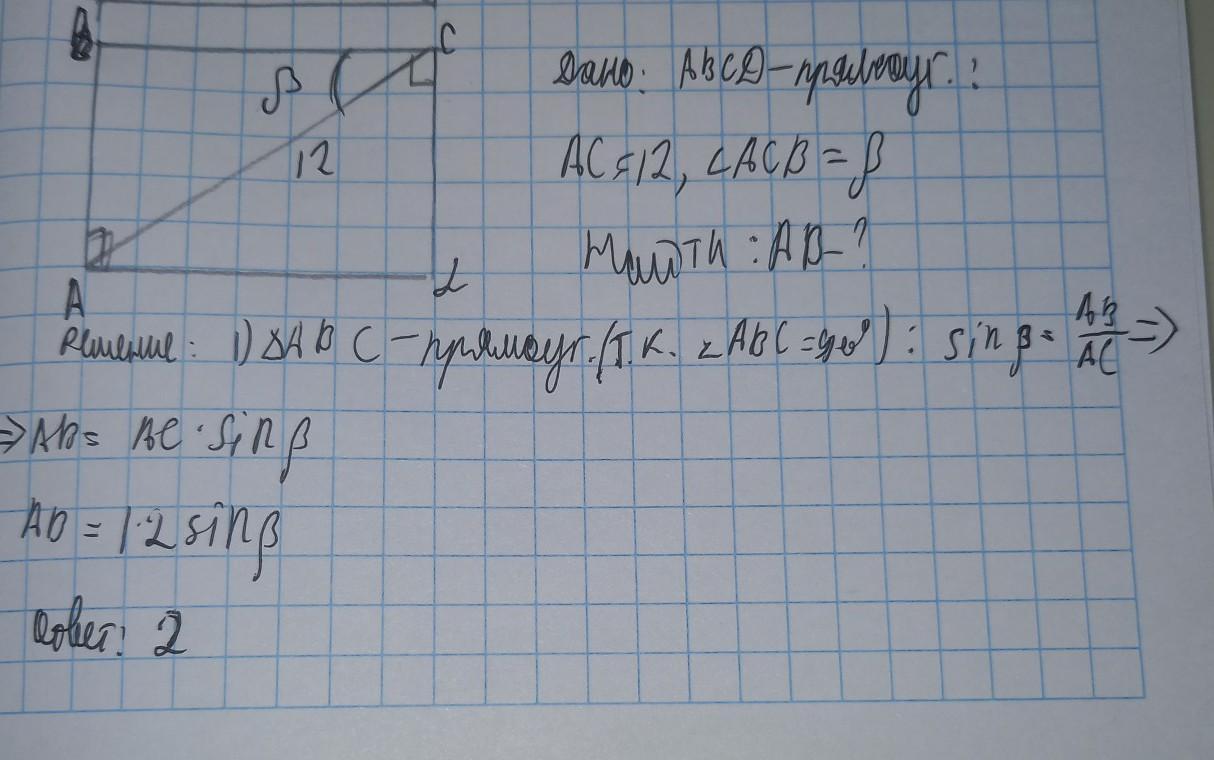 B C
β
12
A L
Дано: ABCD-прямоуг.:
AC=12, ∠ACB=β
Найти: AB-?
Решение: 1) ΔABC-прямоуг.(т.к. ∠ABC=90°): sin β = AB/AC =>
=> AB= AC·sin β
AB = 12 sin β
Ответ: 2